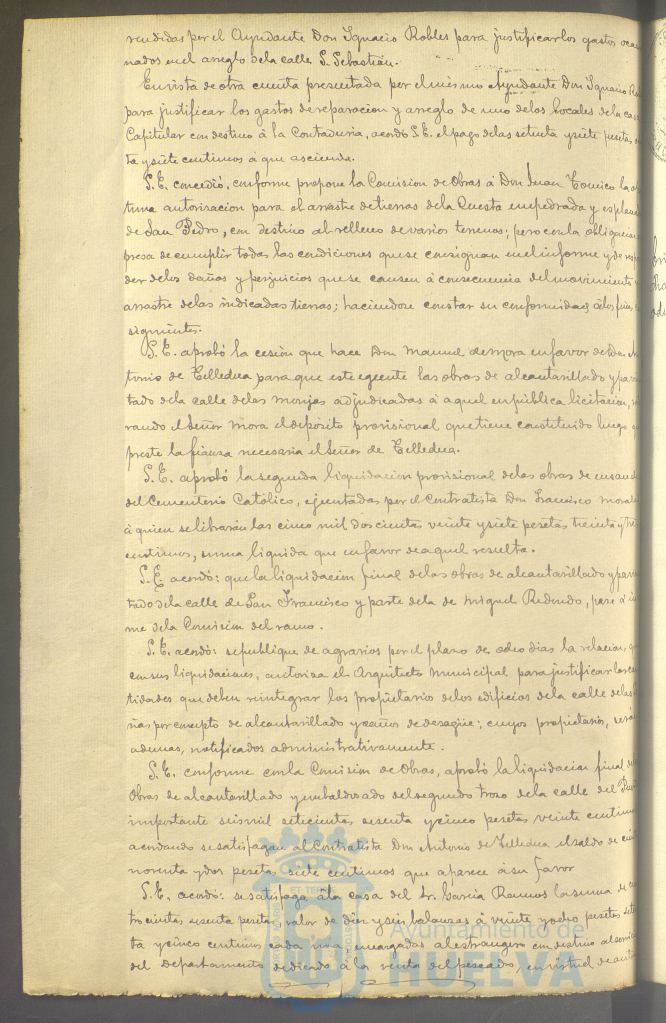 rendidas por el Ayudante Don Ignacio Robles para justificar los gastos oca
nados en el arreglo de la calle S. Sebastián.
En vista de otra cuenta presentada por el mismo Ayudante Don Ignacio Ro
para justificar los gastos de reparacion y arreglo de uno de los locales de la cas
Capitular con destino á la Contaduria, acordó S.E. el pago de las setenta y siete pesetas
ta y siete centimos á que asciende.
S.E. concedió, conforme propone la Comision de Obras á Don Juan la
tuna autorizacion para el arrastre de tierras de la Cuesta empedrada y esplana
de San Pedro, con destino al relleno de varios terrenos; pero con la obligacion
presa de cumplir todas las condiciones que se consignan en el informe y de resp
der de los daños y perjuicios que se causen á consecuencia del movimiento
arrastre de las indicadas tierras; haciendose constar su conformidad á los fines
siguientes.
S.E. aprobó la cesión que hace Don Manuel de Mora en favor de Don An
tonio de Telledua para que este egecute las obras de alcantarillado y pavi
tado de la calle de las Monjas adjudicadas á aquel en pública licitacion,
rando el Señor Mora el depósito provisional que tiene constituido luego q
preste la fianza necesaria el Señor de Telledua.
S.E. aprobó la segunda liquidacion provisional de las obras de ensanch
del Cementerio Católico, ejecutadas por el Contratista Don Francisco Morale
á quien se librarán las cinco mil doscientas veinte y siete pesetas treinta y tres
centimos, suma liquida que en favor de aquel resulta.
S.E. acordó: que la liquidacion final de las obras de alcantarillado y pavi
tado de la calle de San Francisco y parte de la de Miguel Redondo, pase á in
me de la Comision del ramo.
S.E. acordó: se publique de agrarios por el plazo de ocho dias la relacion, q
con sus liquidaciones, autoriza el Arquitecto Municipal para justificar las can
tidades que deben reintegrar los propietarios de los edificios de la calle de las
por concepto de alcantarillado y caños de desagüe; cuyos propietarios, serán
ademas, notificados administrativamente.
S.E. conforme con la Comision de Obras, aprobó la liquidacion final de las
Obras de alcantarillado y embaldosado del segundo trozo de la calle del
importante seis mil setecientas sesenta y cinco pesetas veinte centimos
acordando se satisfagan al Contratista Don Antonio de Telledua el saldo de
noventa y dos pesetas siete centimos que aparece á su favor
S.E. acordó: se satisfaga á la casa del Sr. Garcia Ramos la suma de cua
trocientas sesenta pesetas, valor de diez y seis balanzas á veinte y ocho pesetas seten
ta y cinco centimos cada una encargadas al estrangero con destino al servicio
del Departamento dedicado á la venta del pescado, en virtud de
Ayuntamiento de
HUELVA